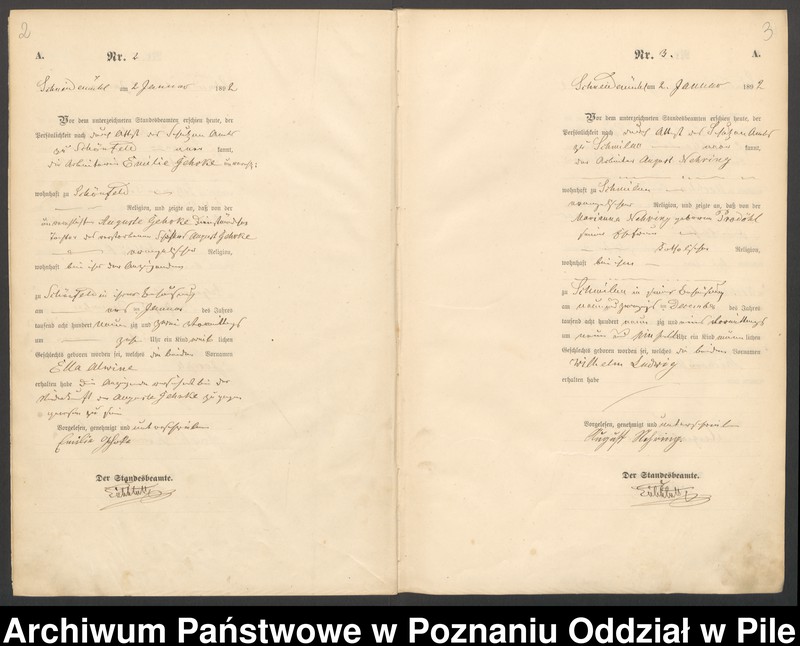 2
A. Nr. 2
Schneidemühl am 2 Januar 1892
Vor dem unterzeichneten Standesbeamten erschien heute, der
Persönlichkeit nach durch Attest des Schulzen Amts
zu Schönfeld kannt,
die Arbeiterin Emilie Gehrke
wohnhaft zu Schönfeld
Religion, und zeigte an, daß von der
Auguste Gehrke
Tochter des verstorbenen August Gehrke
evangelischer Religion,
wohnhaft bei ihr der Anzeigenden
zu Schönfeld in ihrer Behausung
am Januar des Jahres
tausend acht hundert neunzig und zwei Vormittags
um zehn Uhr ein Kind weiblichen
Geschlechts geboren worden sei, welches die beiden Vornamen
Ella Alwine
erhalten habe Die Anzeigende bei der
Niederkunft der Auguste Gehrke zugegen
gewesen zu sein
Vorgelesen, genehmigt und unterschrieben
Emilie Gehrke
Der Standesbeamte.
3
Nr. 3. A.
Schneidemühl am 2. Januar 1892
Vor dem unterzeichneten Standesbeamten erschien heute, der
Persönlichkeit nach durch Attest des Schulzen Amts
zu Schmilau kannt,
der Arbeiter August Nehring
wohnhaft zu Schmilau
evangelischer Religion, und zeigte an, daß von der
Marianna Nehring geborene
seiner Ehefrau
katholischer Religion,
wohnhaft bei ihm
zu Schmilau in seiner Behausung
am neunundzwanzigsten December des Jahres
tausend acht hundert neunzig und eins Vormittags
um neun und einhalb Uhr ein Kind männlichen
Geschlechts geboren worden sei, welches die beiden Vornamen
Wilhelm Ludwig
erhalten habe
Vorgelesen, genehmigt und unterschrieben
August Nehring
Der Standesbeamte.
Archiwum Państwowe w Poznaniu Oddział w Pile